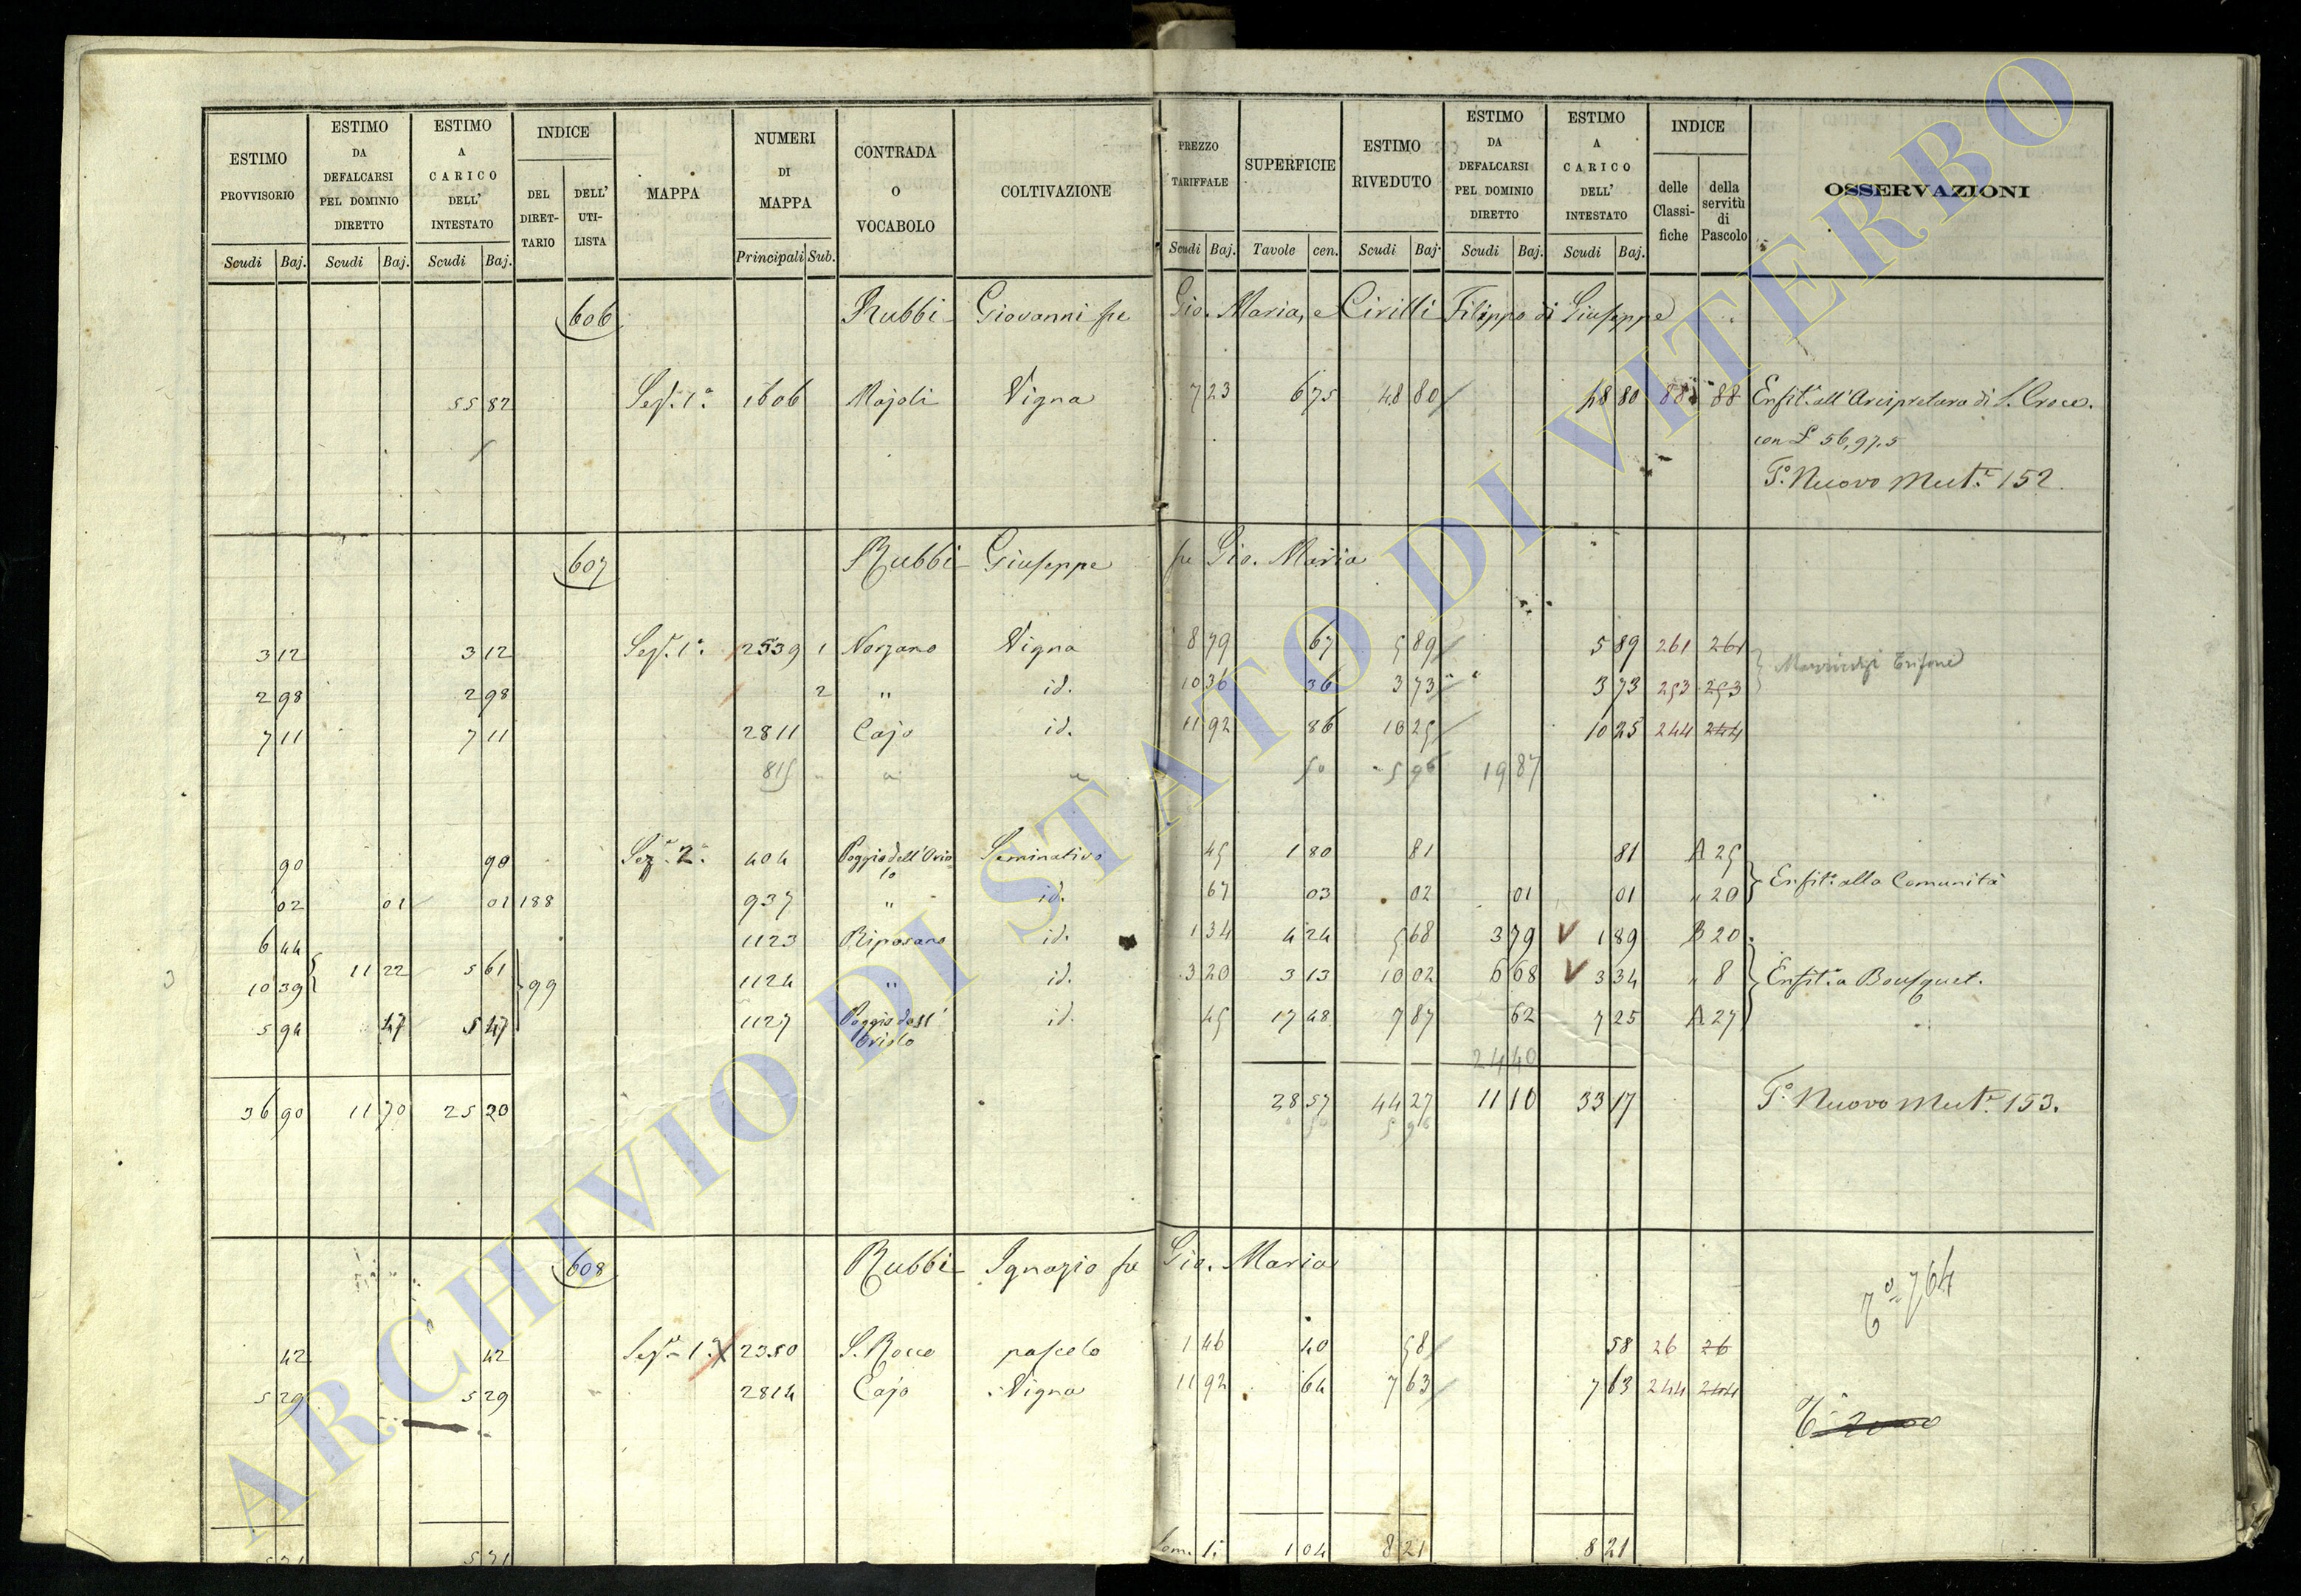 ESTIMO PROVVISORIO | ESTIMO DA DEFALCARSI PEL DOMINIO DIRETTO | ESTIMO A CARICO DELL' INTESTATO | INDICE DEL DIRETTARIO | DELL' UTILISTA | MAPPA | NUMERI DI MAPPA | CONTRADA O VOCABOLO | COLTIVAZIONE | PREZZO TARIFFALE | SUPERFICIE | ESTIMO RIVEDUTO | ESTIMO DA DEFALCARSI PEL DOMINIO DIRETTO | ESTIMO A CARICO DELL' INTESTATO | INDICE delle Classifiche | della servitù di Pascolo | OSSERVAZIONI
Scudi Baj. | Scudi Baj. | Scudi Baj. | Principali Sub. | Scudi Baj. | Tavole cen. | Scudi Baj. | Scudi Baj. | Scudi Baj.
606 Rubbi Giovanni fu Gio. Maria, e Cirilli Filippo di Giuseppe
55 82 | Sez. 1a. | 1606 | Majoli | Vigna | 7 23 | 6 75 | 48 80 | 48 80 | 88 | 88 | Enfit. all'Arcipretura di S. Croce.
con L 56,97,5
T.o Nuovo Mut.e 152
607 Rubbi Giuseppe fu Gio. Maria
3 12 | 3 12 | Sez. 1a. | 2539 1 | Norzano | Vigna | 8 79 | 67 | 5 89 | 5 89 | 261 | 261
2 98 | 2 98 | 2 | " | id. | 10 36 | 36 | 3 73 | 3 73 | 253 | 253
7 11 | 7 11 | 2811 | Cajo | id. | 11 92 | 86 | 10 25 | 10 25 | 244 | 244
815 | " | " | 50 | 5 96 | 19 87
90 | 90 | Sez. 2a. | 404 | Poggio dell'Oriolo | Seminativo | 45 | 1 80 | 81 | 81 | A 25
02 | 01 | 01 | 188 | 937 | " | id. | 67 | 03 | 02 | 01 | 01 | " 20 | Enfit. alla Comunità
6 44 | 1123 | Riposano | id. | 1 34 | 4 24 | 5 68 | 3 79 | V 1 89 | B 20
10 39 | 11 22 | 5 61 | 99 | 1124 | " | id. | 3 20 | 3 13 | 10 02 | 6 68 | V 3 34 | " 8 | Enfit. a Bousquet.
5 94 | 47 | 5 47 | 1127 | Poggio dell'Oriolo | id. | 45 | 17 48 | 7 87 | 62 | 7 25 | A 27
24 40
36 90 | 11 70 | 25 20 | 28 57 | 44 27 | 11 10 | 33 17 | T.o Nuovo Mut.e 153.
50 | 5 96
608 Rubbi Ignazio fu Gio. Maria
T.o 764
42 | 42 | Sez. 1a. | 2350 | S. Rocco | pascolo | 1 46 | 40 | 58 | 58 | 26 | 26
5 29 | 5 29 | 2814 | Cajo | Vigna | 11 92 | 64 | 7 63 | 7 63 | 244 | 244
5 71 | 5 71 | Som. 1. | 1 04 | 8 21 | 8 21
ARCHIVIO DI STATO DI VITERBO